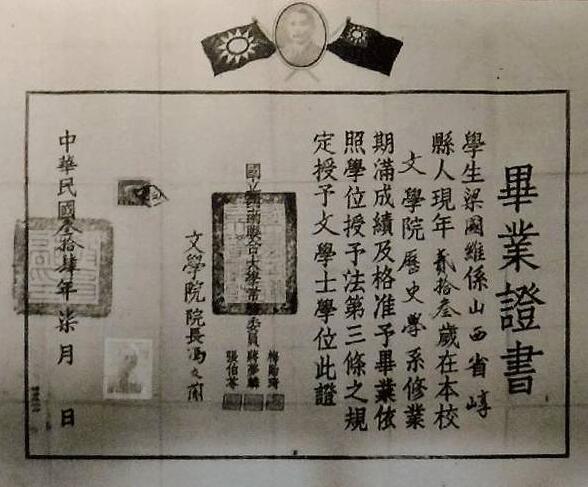 畢業證書
學生梁國維係山西省崞
縣人現年貳拾叁歲在本校
文學院歷史學系修業
期滿成績及格准予畢業依
照學位授予法第三條之規
定授予文學士學位此證
國立西南聯合大學常務委員
梅貽琦
蔣夢麟
張伯苓
文學院院長馮友蘭
中華民國叁拾肆年柒月 日